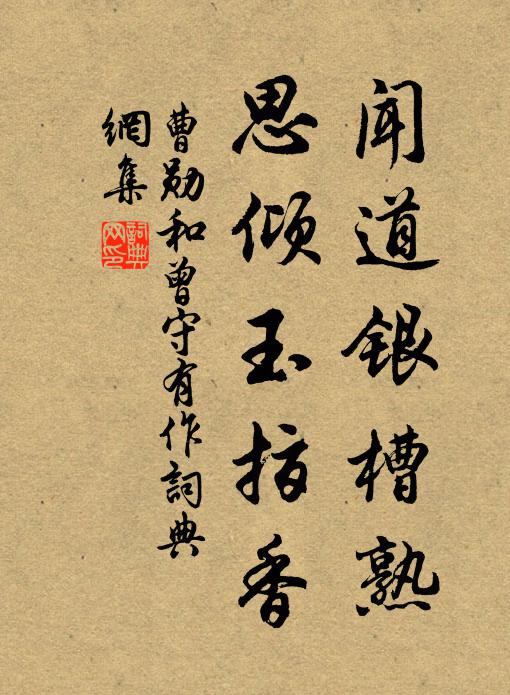 闻道银槽熟
思倾玉指香
曹勋和曾守有作词典
網集
詞典網印